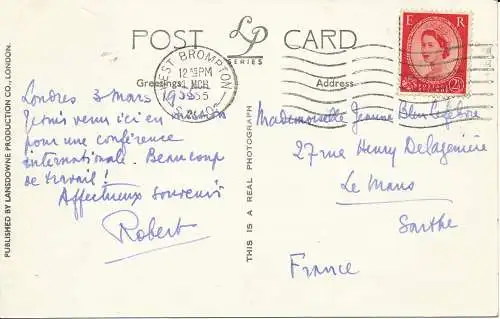 POST LP CARD
SERIES
Greetings
Address
WEST BROMPTON
12 PM
MCH
1955
E R
2½
Londres 3 mars 1955
Je suis venu ici en
pour une conférence
internationale. Beaucoup
de travail !
Affectueux souvenir
Robert
Mademoiselle Jeanne Lefebvre
27 rue Henry Delagenière
Le Mans
Sarthe
France
PUBLISHED BY LANSDOWNE PRODUCTION CO., LONDON.
THIS IS A REAL PHOTOGRAPH